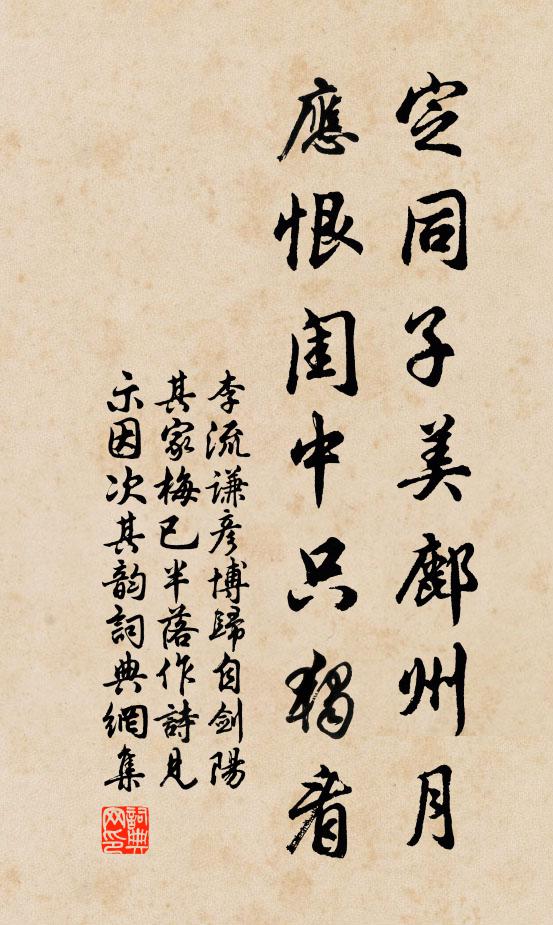 定同子美鄜州月
應恨閨中只獨看
李流謙彦博歸自劍陽
其家梅已半落作詩見
示因次其韵詞典網集
詞典
网印